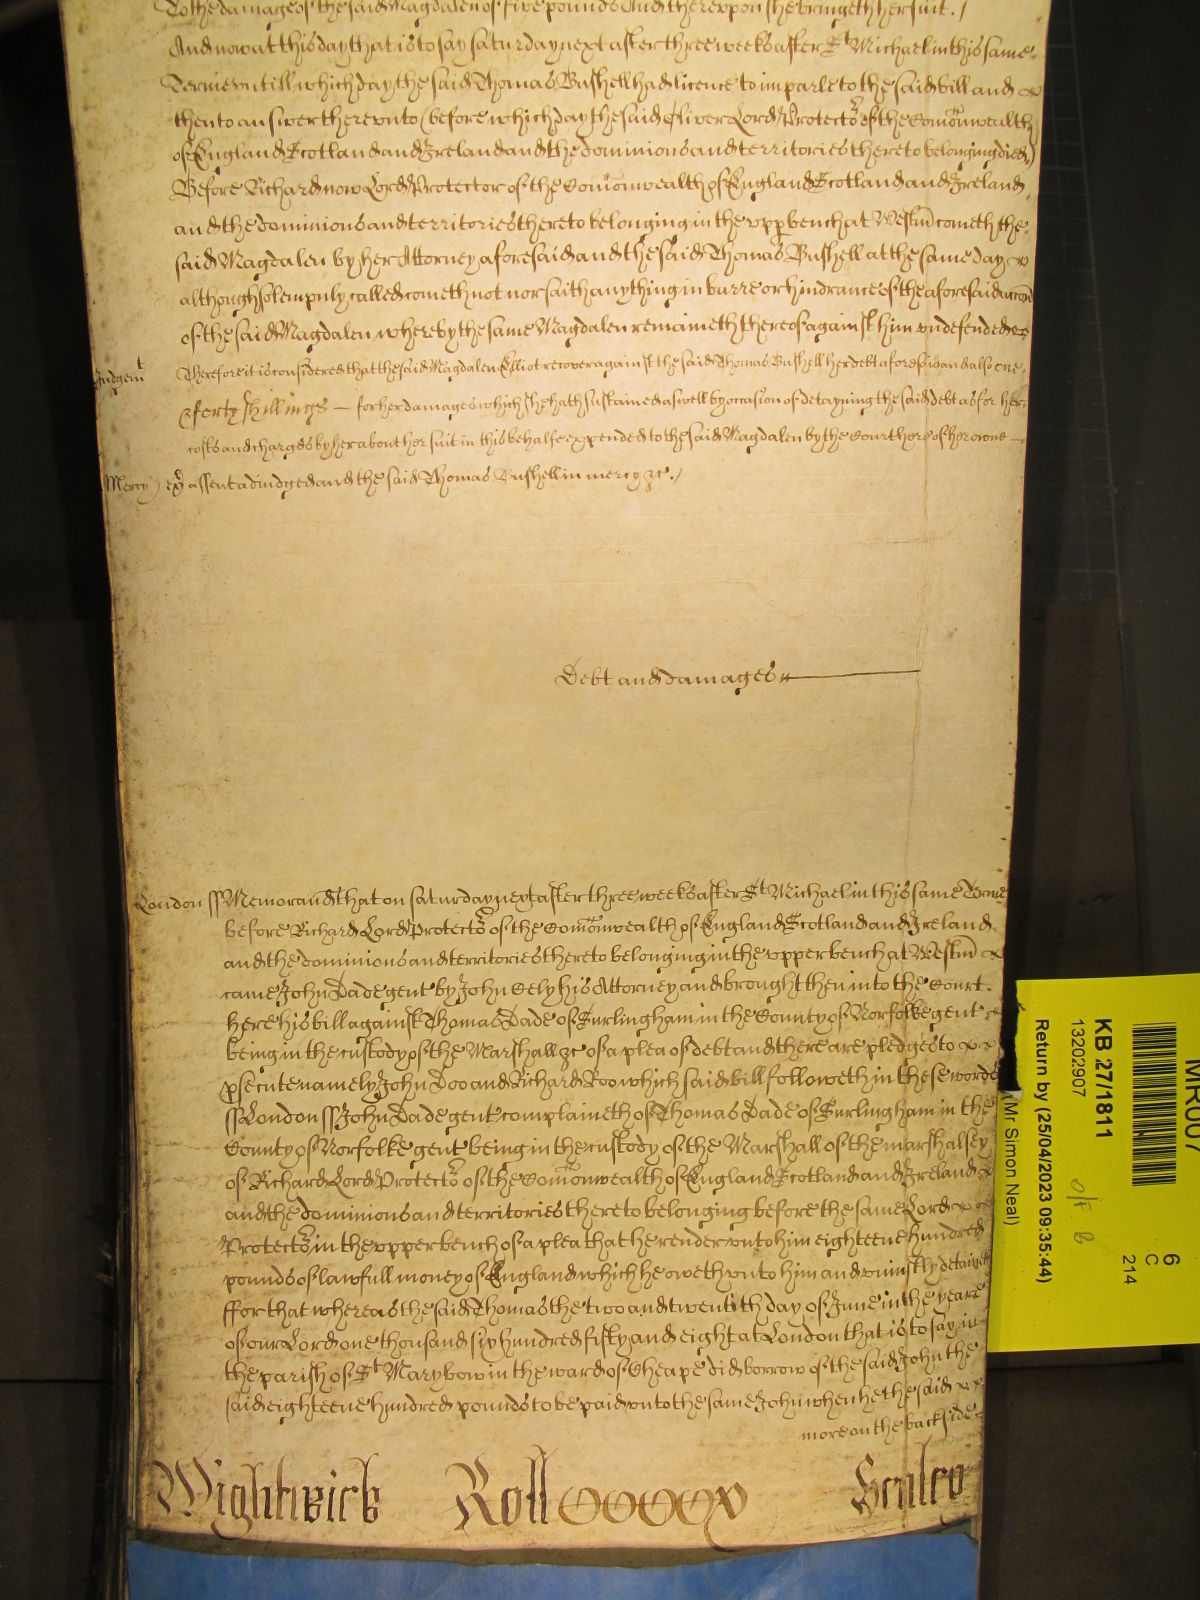 To the damage of the said Magdalen of five pounds And thereupon she bringeth her suit ./
And now at this day that is to say saturday next after three weeks after St Michael in this same
Terme vntill which day the said Thomas Bushell had licence to imparle to the said bill and
then to answer therevnto (before which day the said Oliver Lord Protector of the Comonwealth
of England Scotland and Ireland and the dominions and territories thereto belonging died)
Before Richard now Lord Protector of the Comonwealth of England Scotland and Ireland
and the dominions and territories thereto belonging in the vpp bench at Westm cometh the
said Magdalen by her Attorney aforesaid and the said Thomas Bushell at the same day
although solempnly called cometh not nor saith any thing in barre or hindrance of the aforesaid accon
of the said Magdalen whereby the same Magdalen remaineth thereof against him vndefended
Judgemt Therefore it is considered that the said Magdalen Elliot recover against the said Thomas Bushell her debt aforesaid and also
forty shillings — for her damages which she hath sustained aswell by occasion of detayning the said debt as for her
costs and charges by her about her suit in this behalfe expended to the said Magdalen by the Court here of her owne
Mercy) assent adiudged and the said Thomas Bushell in mercy &c ./
Debt and damages
London ss Memorand that on saturday next after three weeks after St Michael in this same Terme
before Richard Lord Protector of the Comonwealth of England Scotland and Ireland
and the dominions and territories thereto belonging in the vpper bench at Westm
came John Dade gent by John Cely his Attorney and brought then into the Court
here his bill against Thomas Dade of Burlingham in the County of Norfolke gent
being in the custody of the Marshall &c of a plea of debt and there are pledges to
psecute namely John Doo and Richard Roo which said bill followeth in these words
ss London ss John Dade gent complaineth of Thomas Dade of Burlingham in the
County of Norfolke gent being in the custody of the Marshall of the marshalsey
of Richard Lord Protector of the Comonwealth of England Scotland and Ireland
and the dominions and territories thereto belonging before the same Lord
Protector in the vpper bench of a plea that he render vnto him eighteene hundred
pounds of lawfull money of England which he oweth vnto him and vniustly detaineth
ffor that whereas the said Thomas the two and twentith day of June in the yeare
of our Lord one thousand six hundred fifty and eight at London that is to say in
the parish of St Mary bow in the ward of Cheape did borrow of the said John the
said eighteene hundred pounds to be paid vnto the same John when he the said
more on the backside
Wightwick Roll
MR007
6
C
214
KB 27/1811
13202907
Return by (25/04/2023 09:35:44)
(Mr Simon Neal)